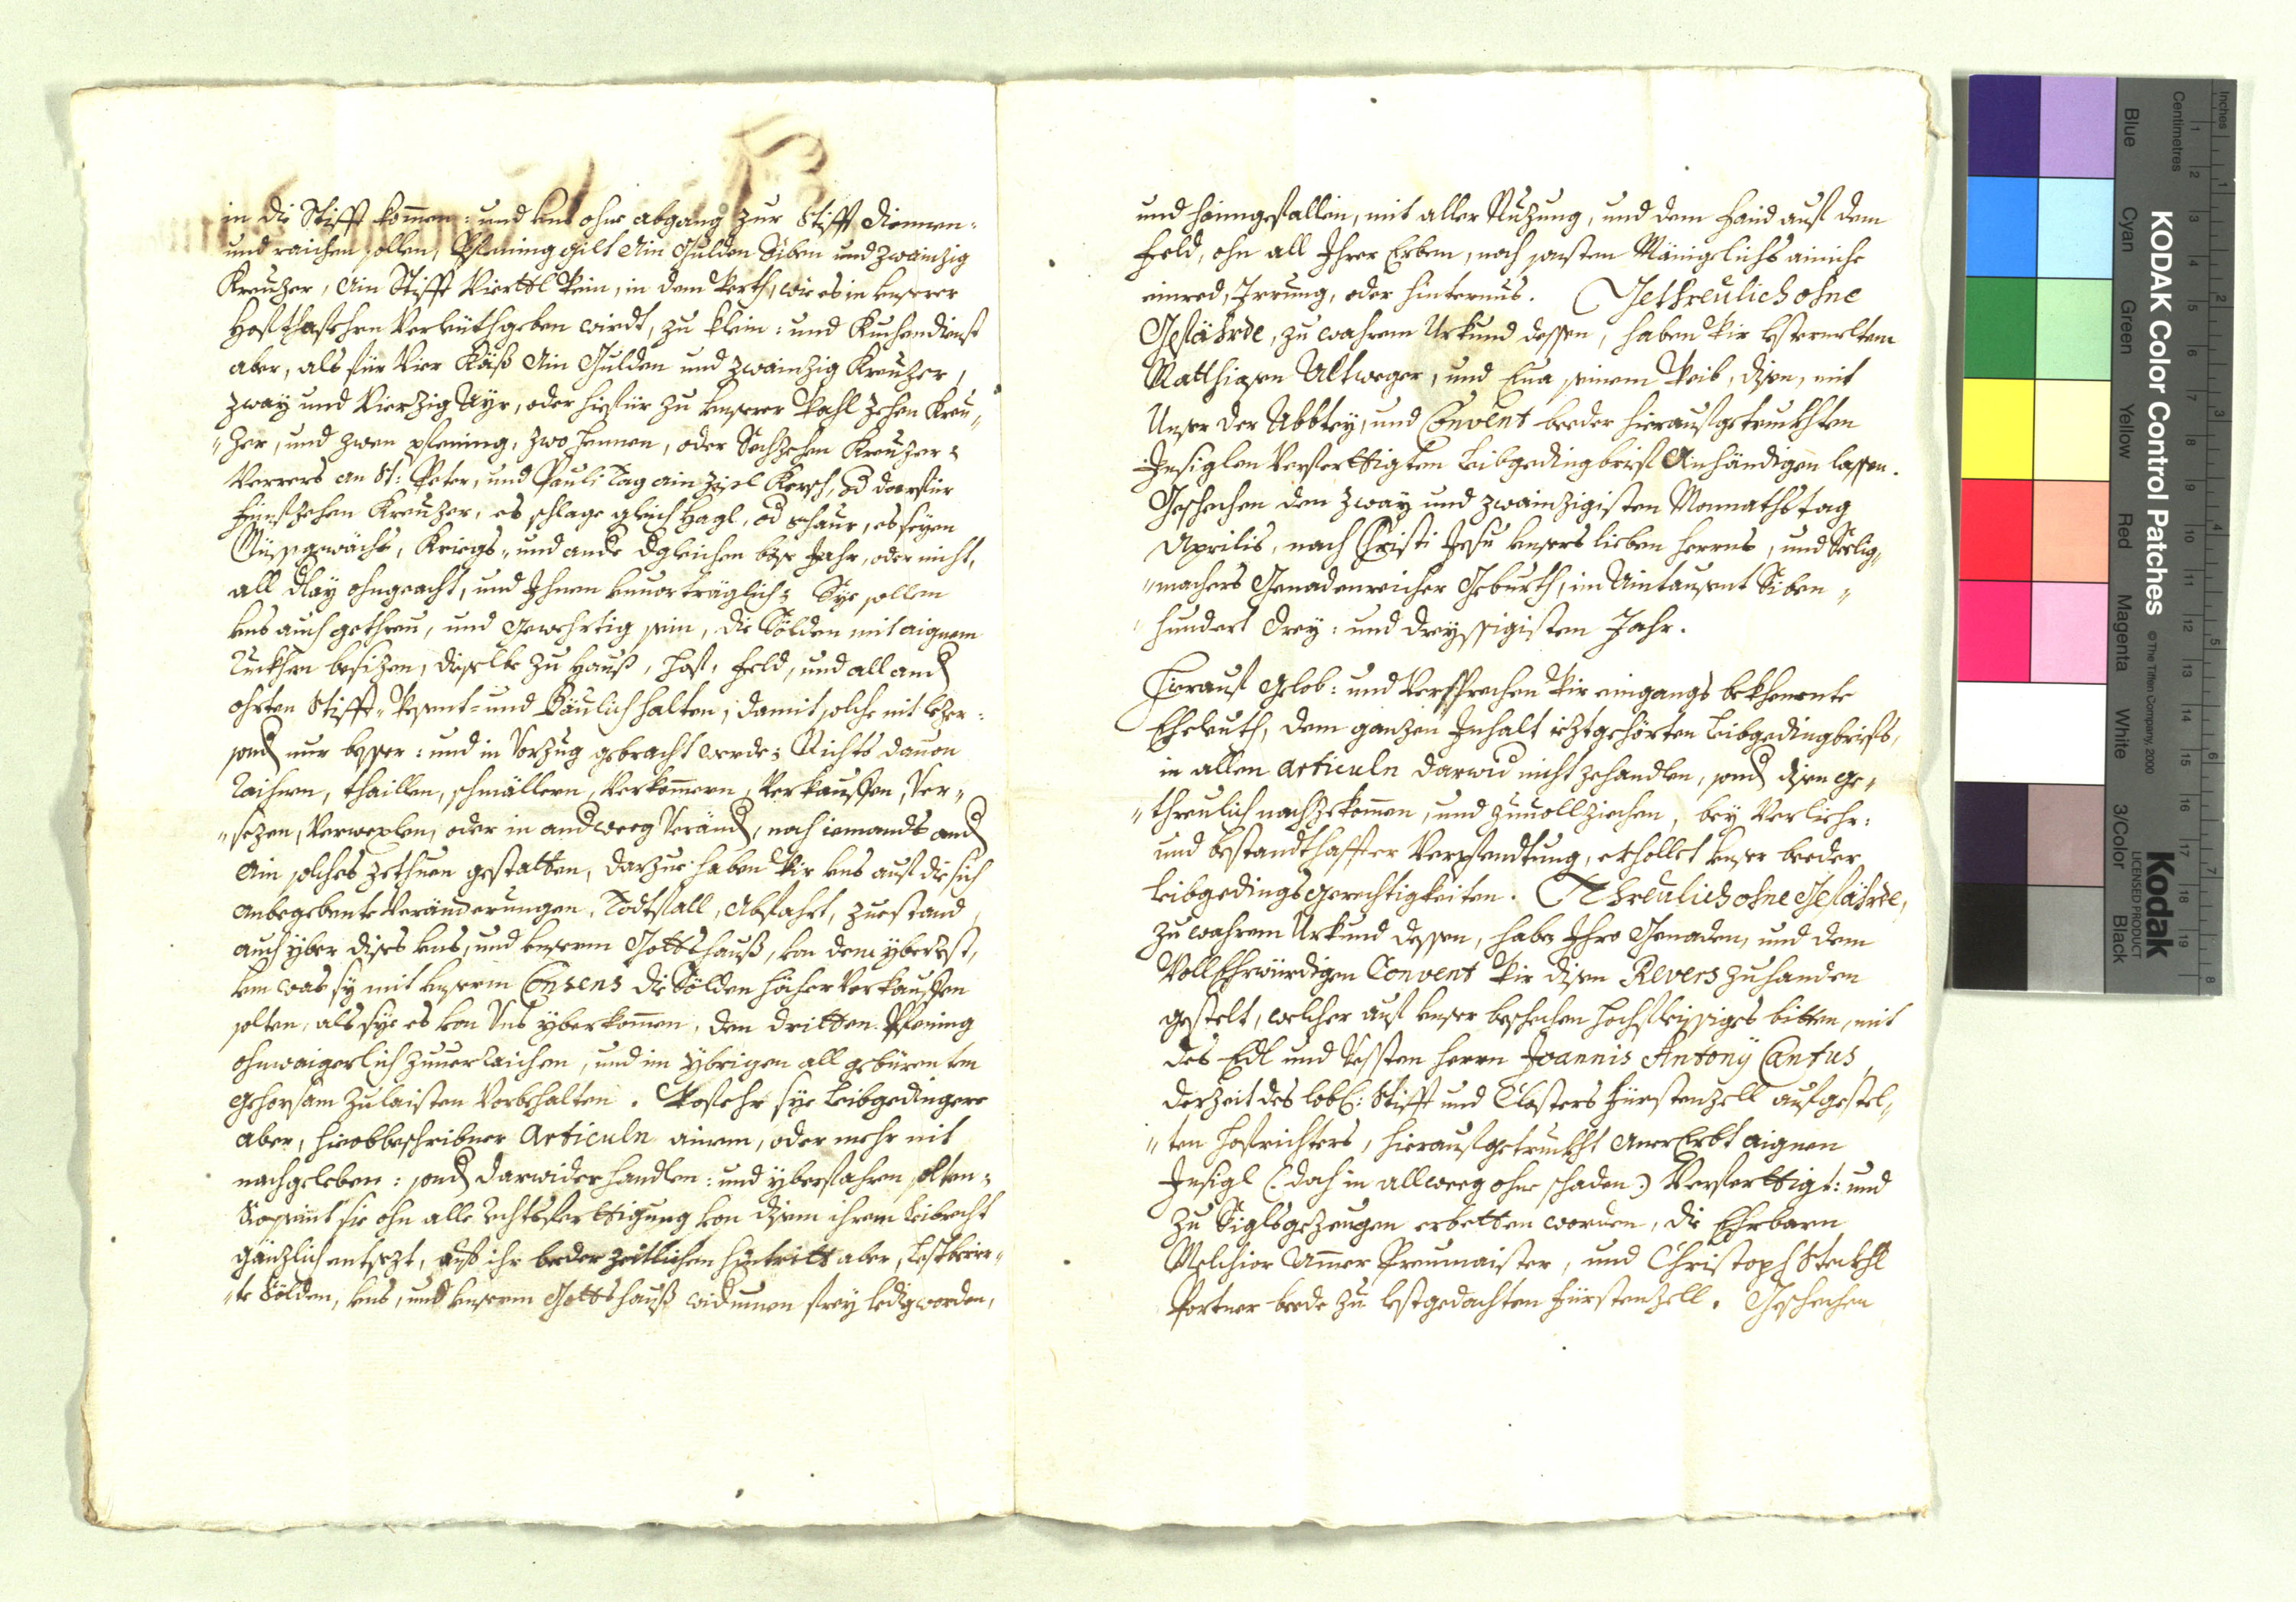 in die Stifft kommen: und uns ohne abgang zur Stifft diennen:
und raichen sollen, Pfening gilt Ain Gulden Siben und zwainzig
Kreuzer, Ain Stifft Viertl Wein, in dem Werth, wie es in unserer
Hoftafehrn Verleuthgeben wirdt, zu klein: und Kuchendienst
aber, als für Vier Käß Ain Gulden und zwainzig Kreuzer,
zway und Vierzig Ayr, oder hiefür zu unserer Wahl zehen Kreu„
„zer, und zwen pfening, zwo Hennen, oder Sechzehen Kreuzer:
Verrers an St: Peter, und Pauli Tag ain Kersch, od darfür
fünfzehen Kreuzer, es schlage gleich Hagl, od schaur, es seyen
Missgewächs, Kriegs„ und ande dgleichen böse Jahr, oder nicht,
all dlay ohngeacht, und Ihnen unuorträglich: Sye sollen
uns auch gethreu, und gewehrtig sein, die Sölden mit aignem
Rukhen besizen, dieselbe zu Hauß, Hof, Feld, und all and
ohrten Stifft„ Wesent= und Bäulich halten, damit solche nit lezer:
sond nur besser: und in Vorzug gebracht werde: Nichts dauon
Raihen, thaillen, schmällern, Verkommern, Verkauffen, Ver„
„sezen, Verwexlen, oder in andweeg Veränd, noch iemands and
Ain solches zethuen gestatten, darzue haben Wir uns auf die sich
anbegebente Veränderungen, Todtfall, Abfahrt, zuestand,
auch yber dises uns, und unserm Gottshauß, von dem yberrest,
um was sy mit unserm Consens die Sölden höcher Verkauffen
solten, als sye es von Uns yberkommen, den dritten Pfening
ohnwaigerlich zuuerraichen, und im ybrigen all gebürenten
Gehorsam zulaisten Vorbehalten. Wofehr sye Leibgedingere
aber, hieobbeschribner Articuln ainem, oder mehr nit
nachgeleben: sond darwider handlen: und yberfahren solten:
sie ohn alle Rechtsferttigung von disem ihrem Leibrecht
gänzlich entsezt, auf ihr beder zeitlichen hintritt aber,
„te Sölden, uns, und unserm Gottshauß widumen frey ledig worden,
und haimgefallen, mit aller Nuzung, und dem Haid auf dem
Feld, ohn all Ihrer Erben, noch sonsten Mänigelichs ainiche
einred, Irrung, oder hinternus. Gethreulich ohne
Gefährde, zu wahrem Urkund dessen, haben Wir
Matthiasen Altweger, und Eua seinem Weib, disen, mit
Unser der Abbtey, und Convent beeder hierauf getrukhten
Insiglen Verferttigten Leibgedingbrief Anhändigen lassen.
Geschechen den zway und zwainzigisten Monnathstag
Aprilis, nach Christi Jesu unsers lieben Herrns, und Seelig„
„machers Genadenreicher Geburth, im Aintausent Siben„
hundert drey: und dreyssigisten Jahr.
Hierauf gelob: und Versprechen Wir eingangs bekhennte
Eheleuth, dem ganzen Inhalt iezt gehörten Leibgedingbriefs,
in allen articuln darwid nicht zehandlen, sond disen ge„
„threulich nachzekommen, und zuuollziechen, bey Verliehr:
und bestandthaffter Verpfendtung, unser beeder
Leibgedingsgerechtigkeiten. Threulich ohne Gefährde,
zu wahrem Urkund dessen, haben Ihro Genaden, und dem
VollEhrwürdigen Convent Wir disen Revers zuhanden
gestelt, welcher auf unser beschechen hochfleissiges bitten, mit
des Edl und Vessten Herrn Joannis Antonÿ Cantus,
derzeit des lobl: Stifft und Closters Fürstenzell aufgestel„
„ten Hofrichters, hierauf getrukht Aner Erbt aignen
Insigl (: doch in allweeg ohne schaden:) Verferttigt: und
zu Siglsgezeugen erbetten worden, die Ehrbarn
Melchior Ammer Preumaister, und Christoph Stekhl
Portner beede zu lestgedachten Fürstenzell. Geschechen
KODAK Color Control Patches
© The Tiffen Company, 2000
Kodak
LICENSED PRODUCT
Inches
Centimetres
Blue
Cyan
Green
Yellow
Red
Magenta
White
3/Color
Black